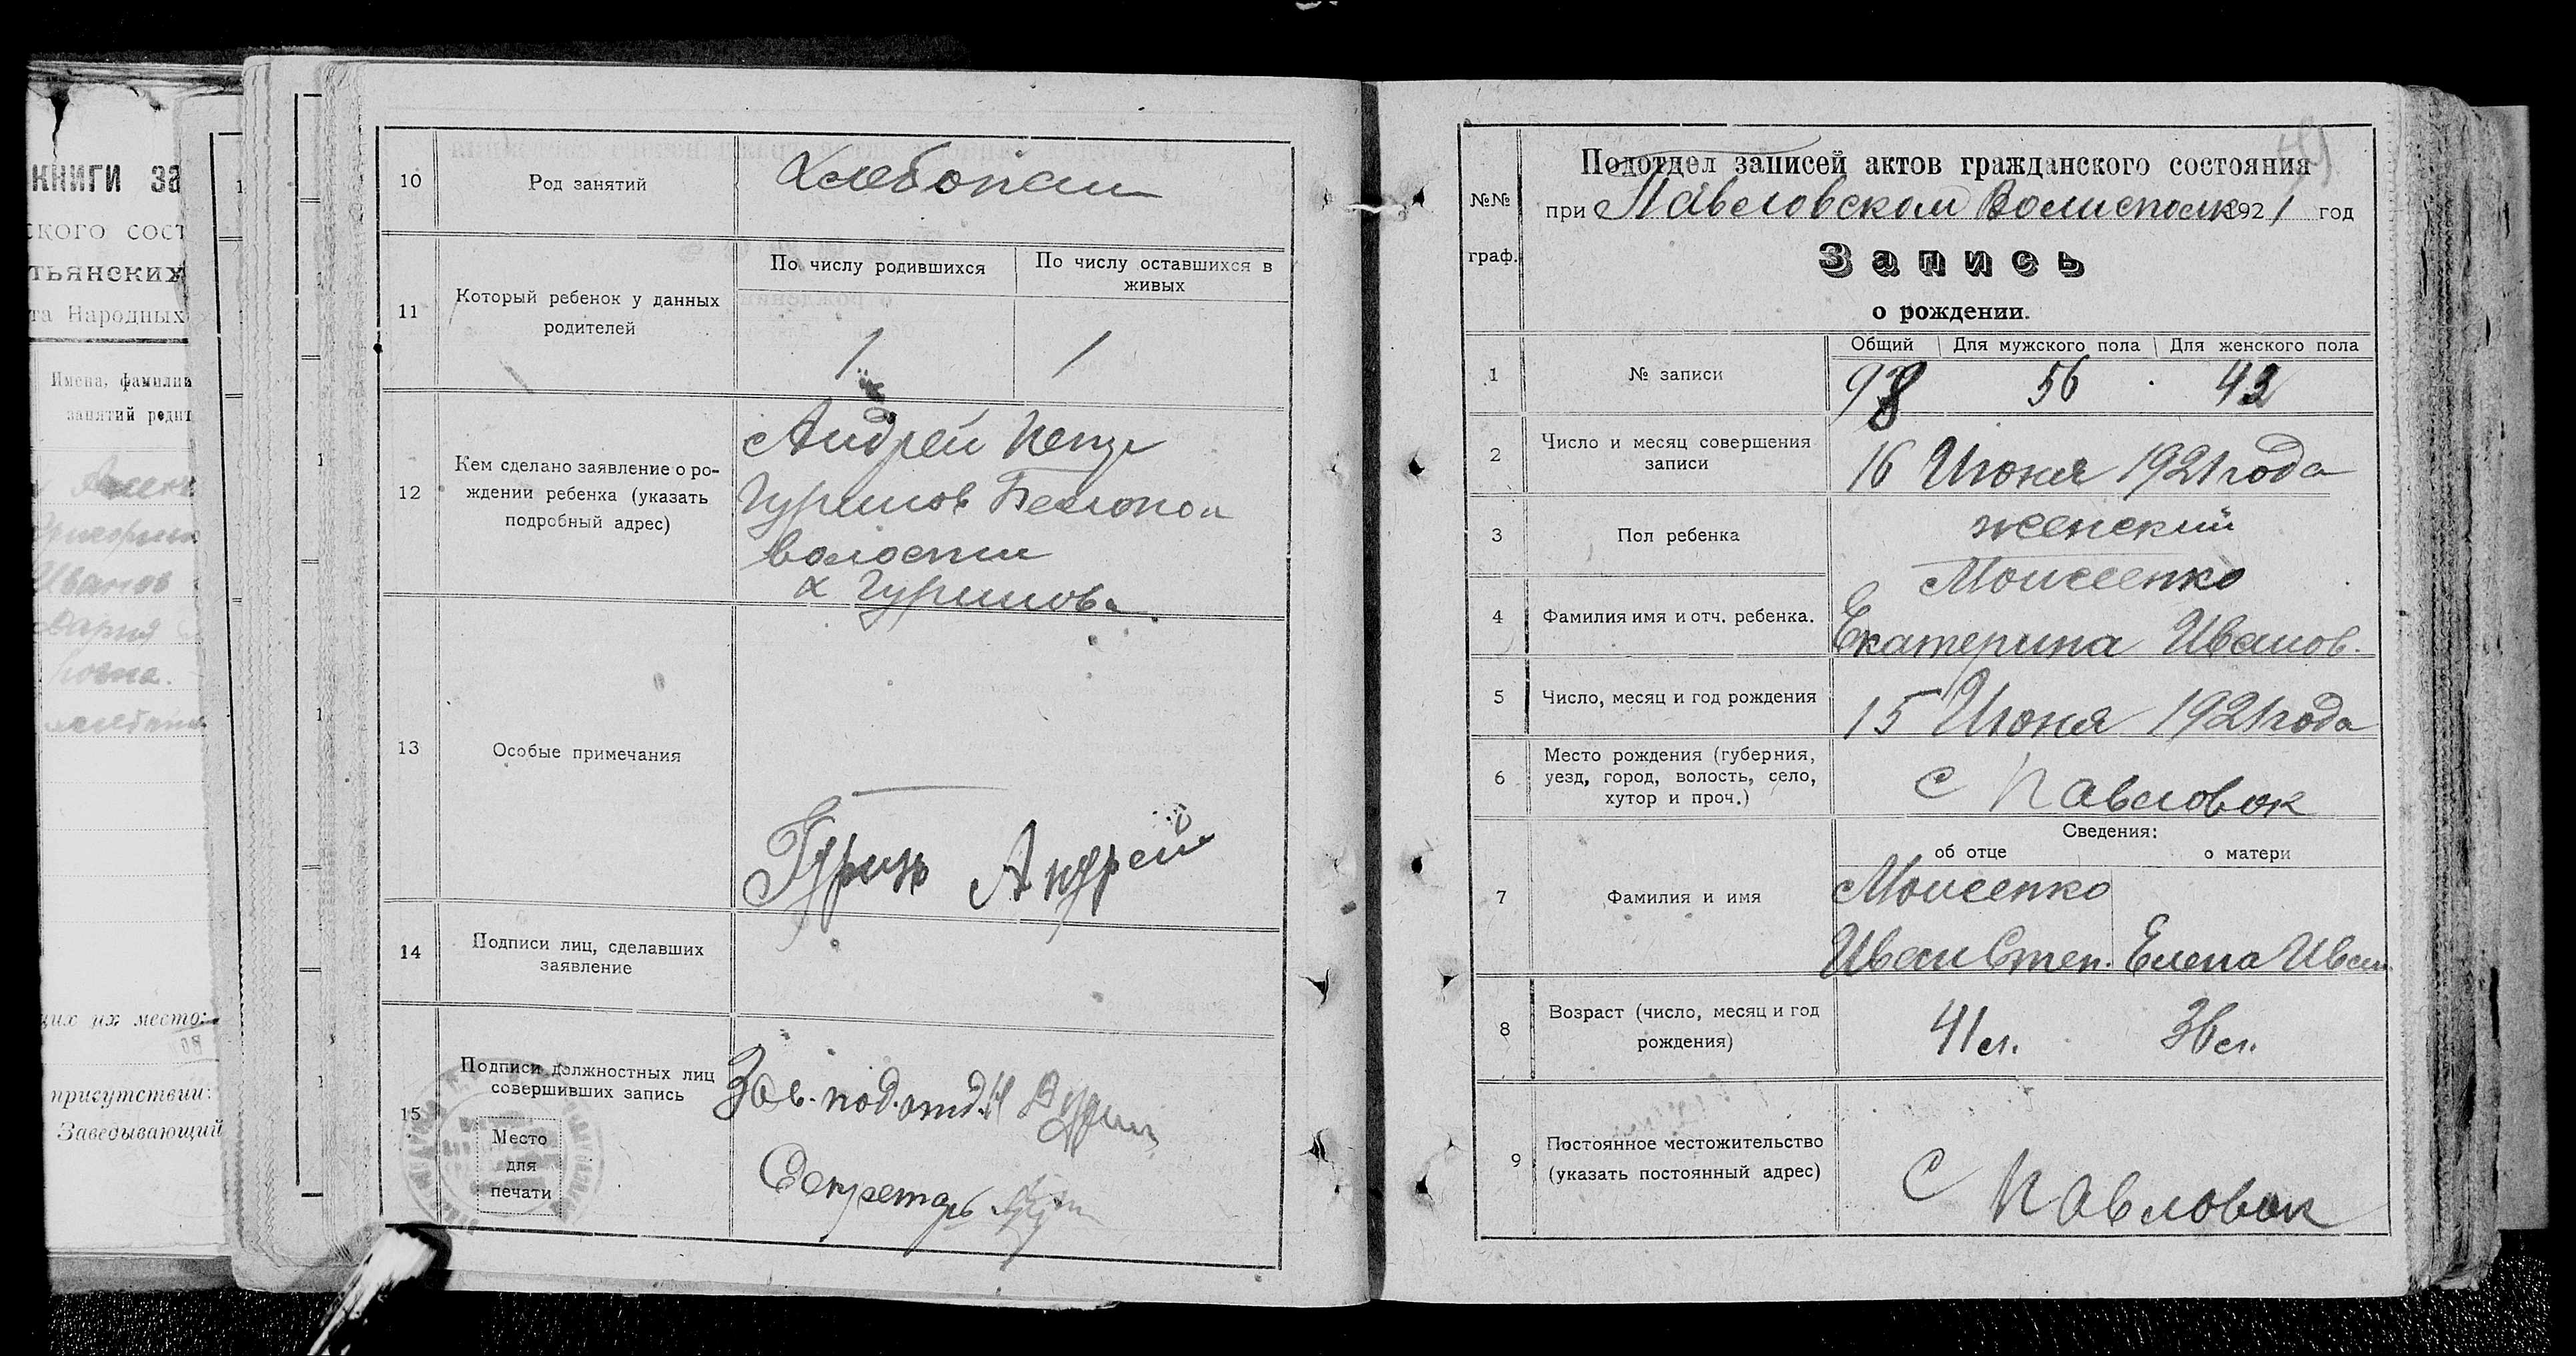 книги за
ского сост
тьянских
та Народных
Имена, фамилии
занятий родит
Иванов
Дарья
их их место:
присутствии:
Заведывающий
10 Род занятий Хлебопаш
11 Который ребенок у данных родителей
По числу родившихся По числу оставшихся в живых
1 1
12 Кем сделано заявление о ро-
ждении ребенка (указать
подробный адрес)
Андрей
волости
х Гуринова
13 Особые примечания
Андрей
14 Подписи лиц, сделавших
заявление
15 Подписи должностных лиц
совершивших запись
Место
для
печати
Зав. подотд.
Секретарь
№№
граф.
Подотдел записей актов гражданского состояния
при Павловском Волисполк 1921 год
Запись
о рождении.
Общий Для мужского пола Для женского пола
1 № записи 98 56 42
2 Число и месяц совершения
записи
16 Июня 1921 года
3 Пол ребенка женский
4 Фамилия имя и отч. ребенка.
Моисеенко
Екатерина Иванов.
5 Число, месяц и год рождения 15 Июня 1921 года
6 Место рождения (губерния,
уезд, город, волость, село,
хутор и проч.)
с Павловок
Сведения:
об отце о матери
7 Фамилия и имя
Моисеенко
Иван Степ. Елена Иван
8 Возраст (число, месяц и год
рождения)
41 л. 36 л.
9 Постоянное местожительство
(указать постоянный адрес)
с Павловок